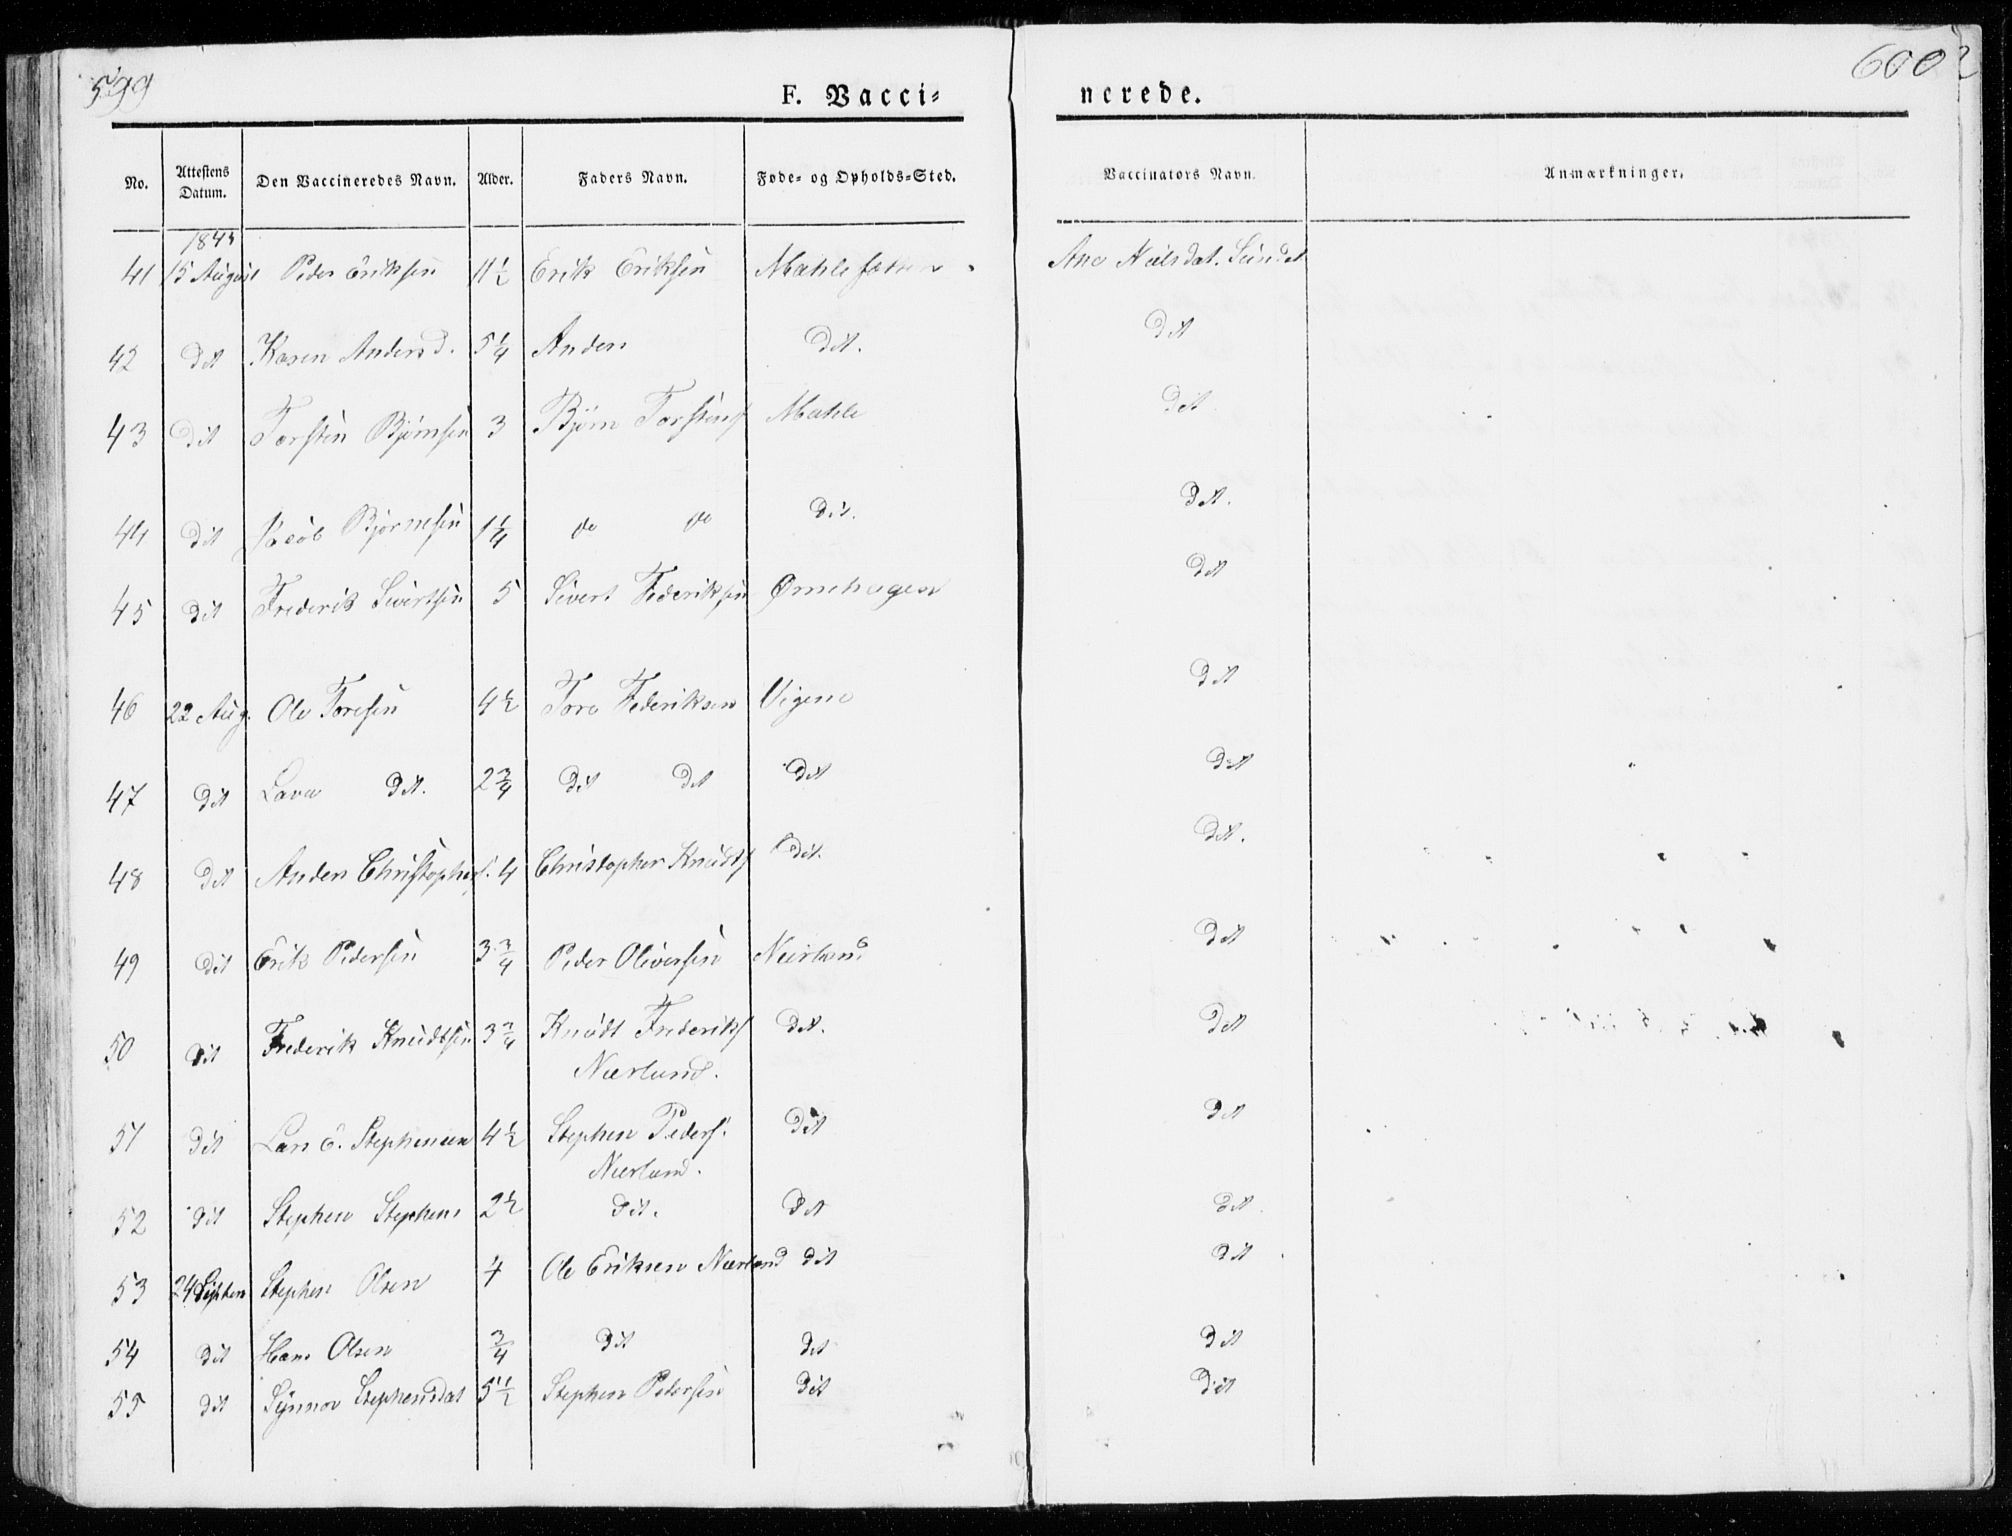 599
600
F. Vacci=
nerede.
No. Attestens Datum. Den Vaccineredes Navn. Alder. Faders Navn. Føde= og Opholds=Sted. Vaccinators Navn. Anmærkninger.
41 15 August Peder Eriksen 11½ Erik Eriksen Ane Neilsdat. Sundet
42 dit Karen Andersd. 5¼ Anders dit. dit
43 dit Torsten Bjørnsen 3 Bjørn Torstens Mæhle dit
44 dit Jacob Bjørnesen 1¼ do do dit. dit.
45 dit Frederik Sivertsen 5 Sivert Federiksen Ørnehagen dit
46 22 Aug. Ole Toresen 4½ Tore Federiksen Vigene dit
47 dit Lars dit. 2¾ dit dit dit dit
48 dit Anders Christophers. 4 Christopher Knudts dit. dit.
49 dit Erik Pedersen 3¾ Peder Oliversen Nærland dit
50 dit Frederik Knudtsen 3¾ Knudt Frederiks dit. dit
Nærland.
51 dit Lars E. Stephensen 4½ Stephen Peders. dit dit
Nærland.
52 dit Stephen Stephens 2½ dit. dit dit
53 24 Septem Stephen Olsen 4 Ole Eriksen Nærland dit dit
54 dit Hans Olsen ¾ dit dit dit
55 dit Synnov Stephensdat 5½ Stephen Pedersen dit dit